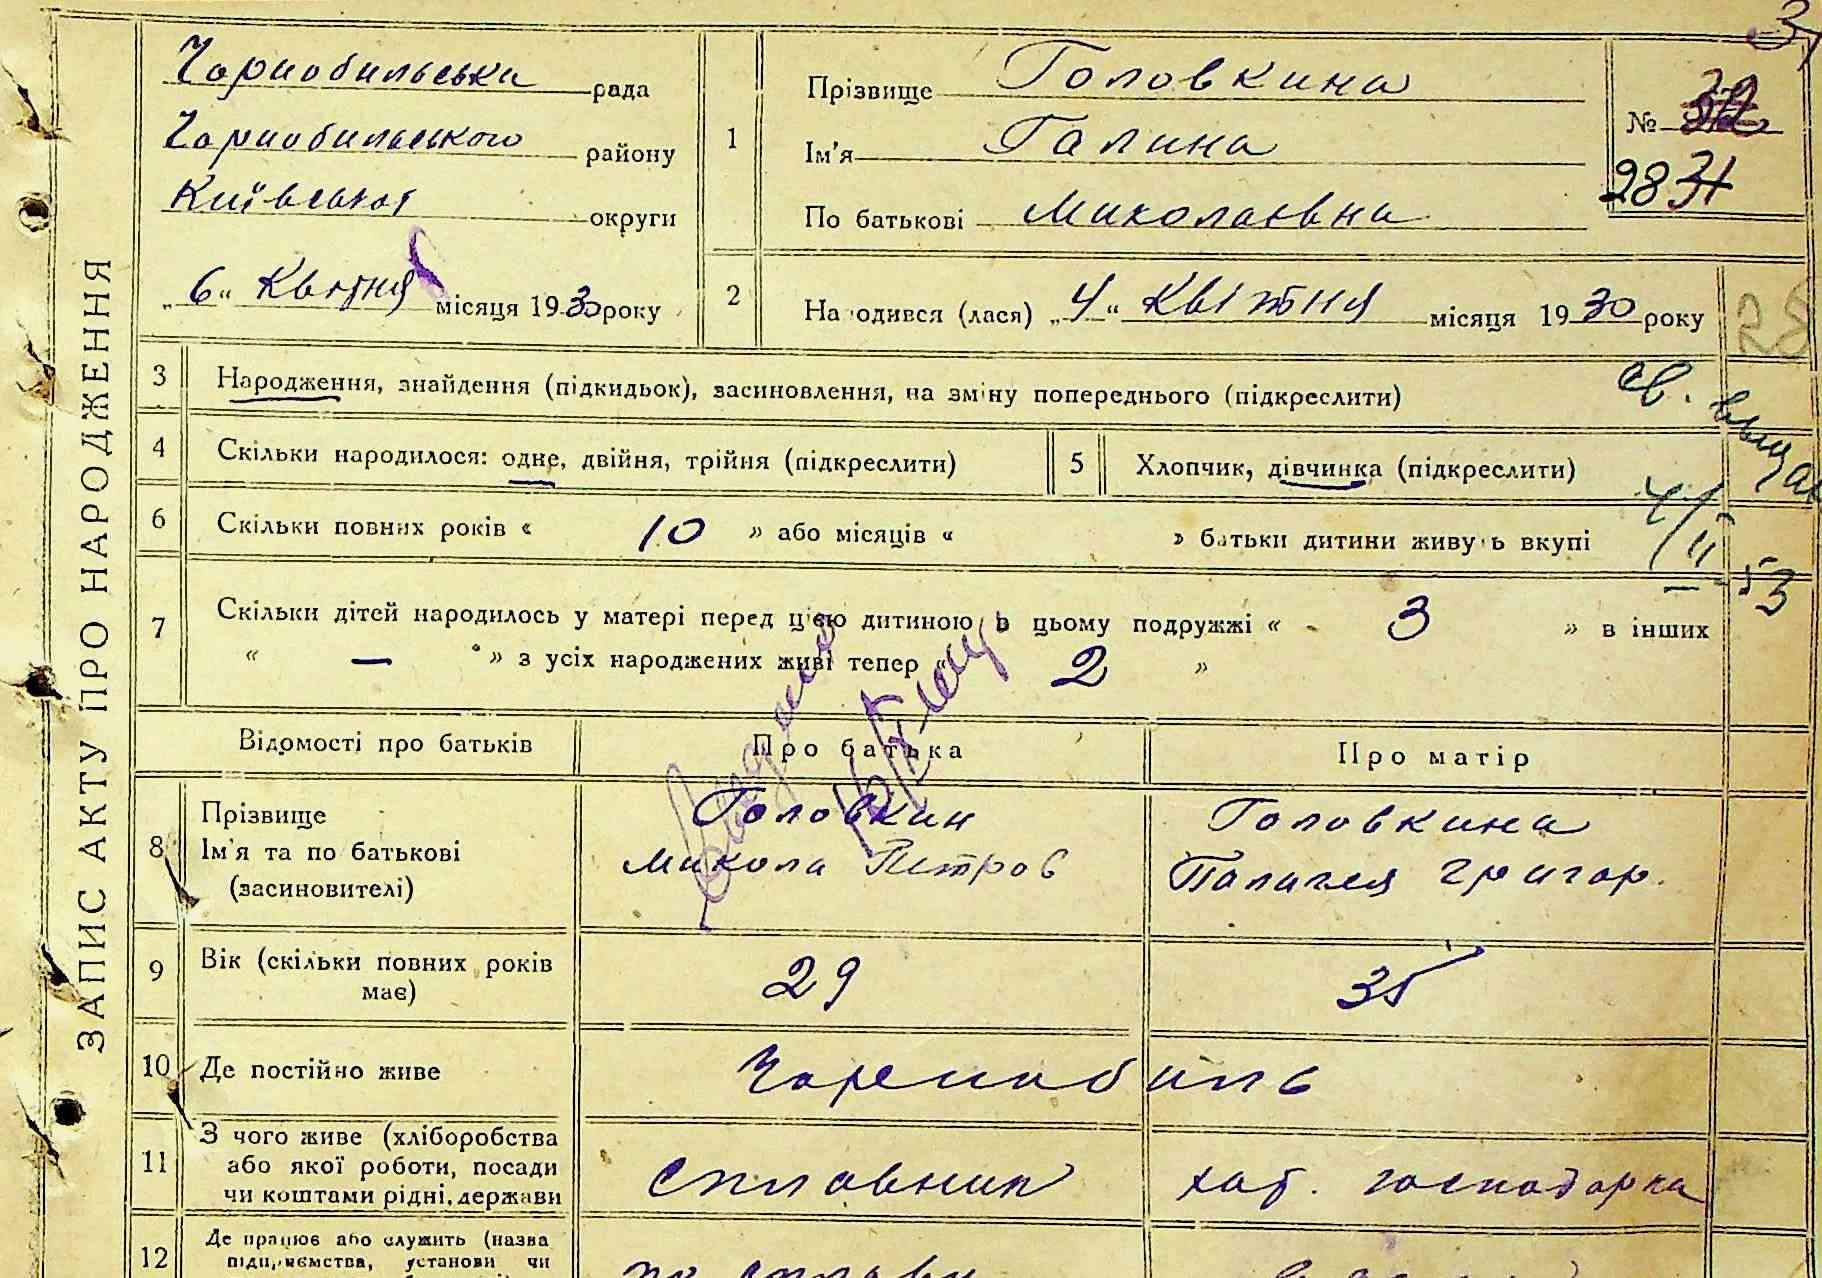 ЗАПИС АКТУ ПРО НАРОДЖЕННЯ
Чорнобильська рада
Чорнобильського району
Київської округи
„6“ Квітня місяця 1930 року
1
Прізвище Головкина
Ім'я Галина
По батькові Миколаєвна
№
28 31
2
Народився (лася) „4“ Квітня місяця 1930 року
28
3 Народження, знайдення (підкидьок), засиновлення, на зміну попереднього (підкреслити)
4 Скільки народилося: одне, двійня, трійня (підкреслити)
5 Хлопчик, дівчинка (підкреслити)
св.
4/II-53
6 Скільки повних років « 10 » або місяців « » батьки дитини живуть вкупі
7 Скільки дітей народилось у матері перед цією дитиною в цьому подружжі « 3 » в інших
« — » з усіх народжених живі тепер « 2 »
Відомості про батьків Про батька Про матір
8 Прізвище
Ім'я та по батькові
(засиновителі)
Головкин
Микола Петров
Головкина
Палагея Григор.
9 Вік (скільки повних років
має)
29 35
10 Де постійно живе Чорнобиль
11 З чого живе (хліборобства
або якої роботи, посади
чи коштами рідні, держави
сплавник хат. господарка
12 Де працює або служить (назва
підприємства, установи чи